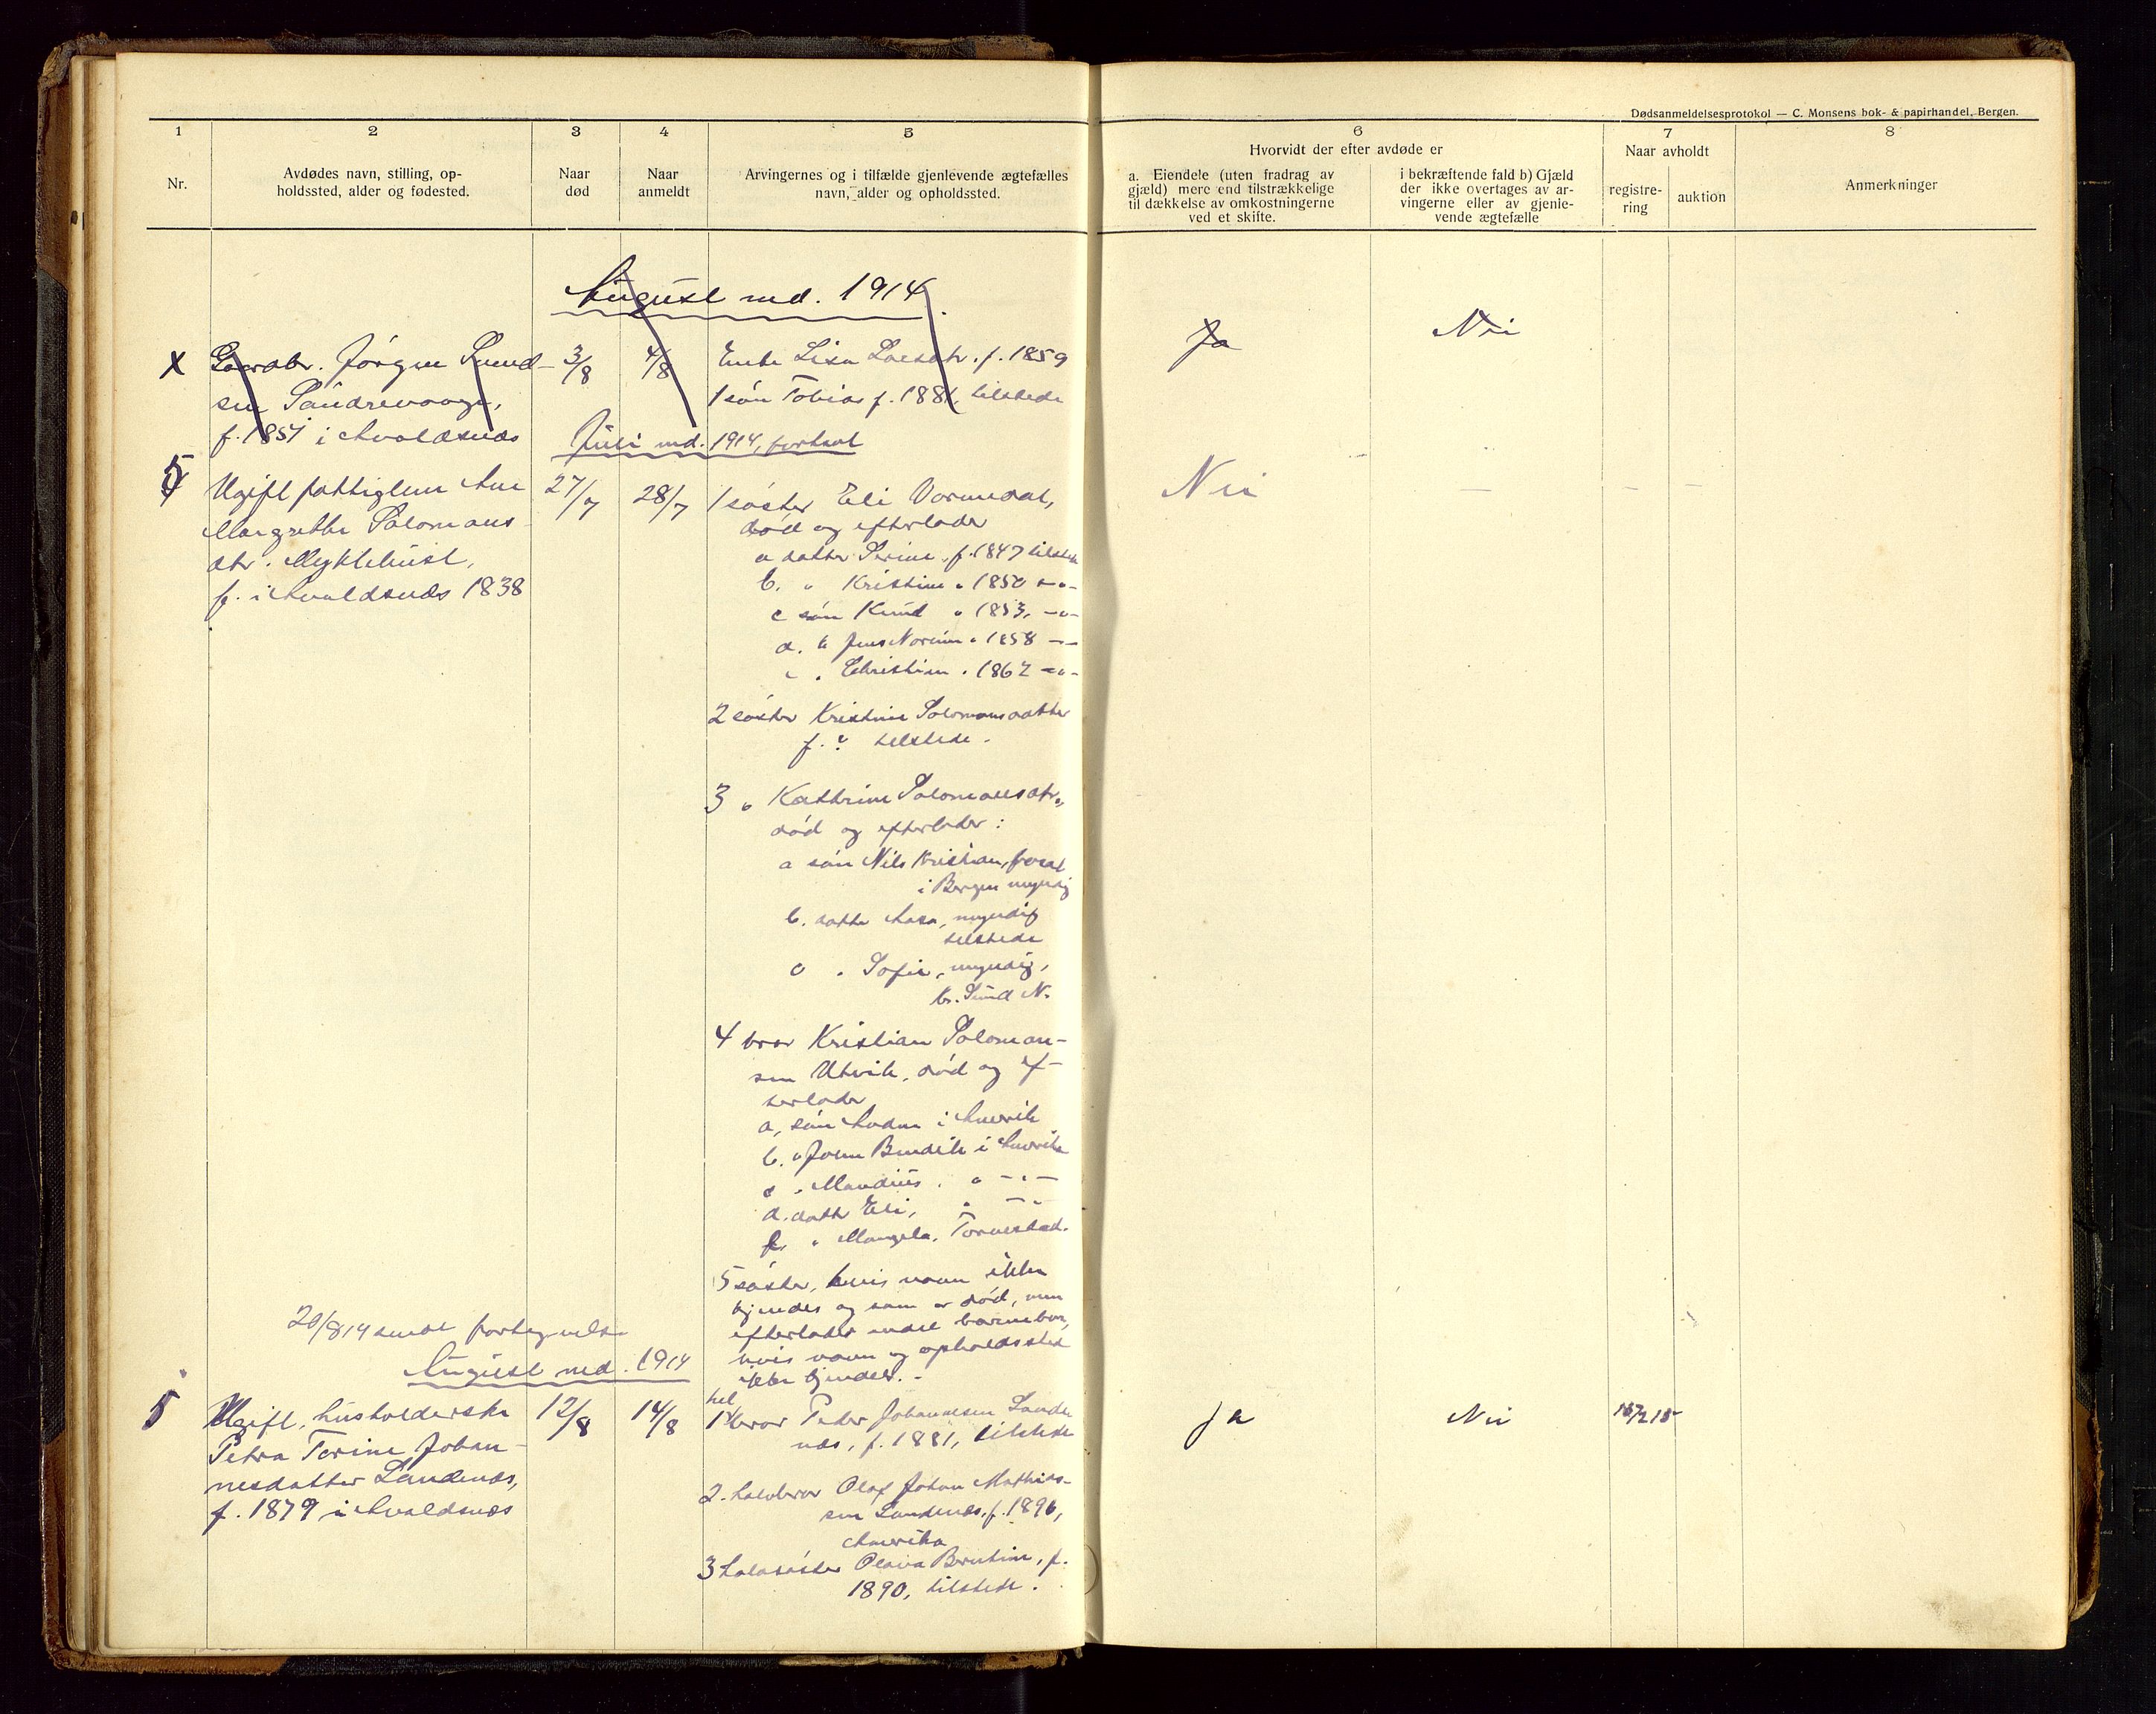 Dødsanmeldelsesprotokol — C. Monsens bok- & papirhandel, Bergen.
1 2 3 4 5 6 7 8
Nr.
Avdødes navn, stilling, op-
holdssted, alder og fødested.
Naar
død
Naar
anmeldt
Arvingernes og i tilfælde gjenlevende ægtefælles
navn, alder og opholdssted.
Hvorvidt der efter avdøde er
a. Eiendele (uten fradrag av
gjæld) mere end tilstrækkelige
til dækkelse av omkostningerne
ved et skifte.
i bekræftende fald b) Gjæld
der ikke overtages av ar-
vingerne eller av gjenle-
vende ægtefælle
Naar avholdt
registre-
ring
auktion
Anmerkninger
August md. 1914.
x
Gaardbr. Jørgen
sen
f. 1851 i Avaldsnæs
3/8
4/8
Enke Lisa Larsdtr. f. 1859
1 søn Tobias f. 1881, tilstede
Ja
Nei
Juli md. 1914, fortsat
Ugift fattiglem Ane
Margrethe Salomons
dtr. Myklebust,
f. i Avaldsnæs 1838
27/7
28/7
1 søster Eli Vormedal,
død og efterlader
a datter Serine f. 1847 tilstede
b. " Kristine " 1850 -"-
c søn Knud " 1853, -"-
d. " Jens Norenius " 1858 -"-
" Christian " 1862 -"-
2 søster Kristine Salomonsdatter
f. ? tilstede.
3 " Kathrine Salomonsdtr.,
død og efterlader:
a søn Nils Kristian,
i Bergen myndig
b. datter Aasa, myndig
tilstede
c " Sofie, myndig,
4 bror Kristian Salomon-
sen Utvik, død og ef-
terlader
a, søn Andr i Amerik
b. " John Bendik i Amerika
c " Mandius, " -"-
d. datter Eli, " -"-
" Torvestad.
5 søster, hvis navn ikke
kjendes og som er død, men
efterlader endel barnebarn,
hvis navn og opholdssted
ikke kjendes. -
Nei
— — —
20/8 14 sendt fortegnelse
August md. 1914
5
Ugift, husholderske
Petra Torine Johan-
nesdatter Landenæs,
f. 1879 i Avaldsnæs
12/8
14/8
hel
1 bror Peder Johannesen Lande
næs, f. 1881, tilstede
2. halvbror Olaf Johan Mathias-
sen Landenæs, f. 1896,
Amerika
3 halvsøster Olava Berntine, f.
1890, tilstede.
Ja
Nei